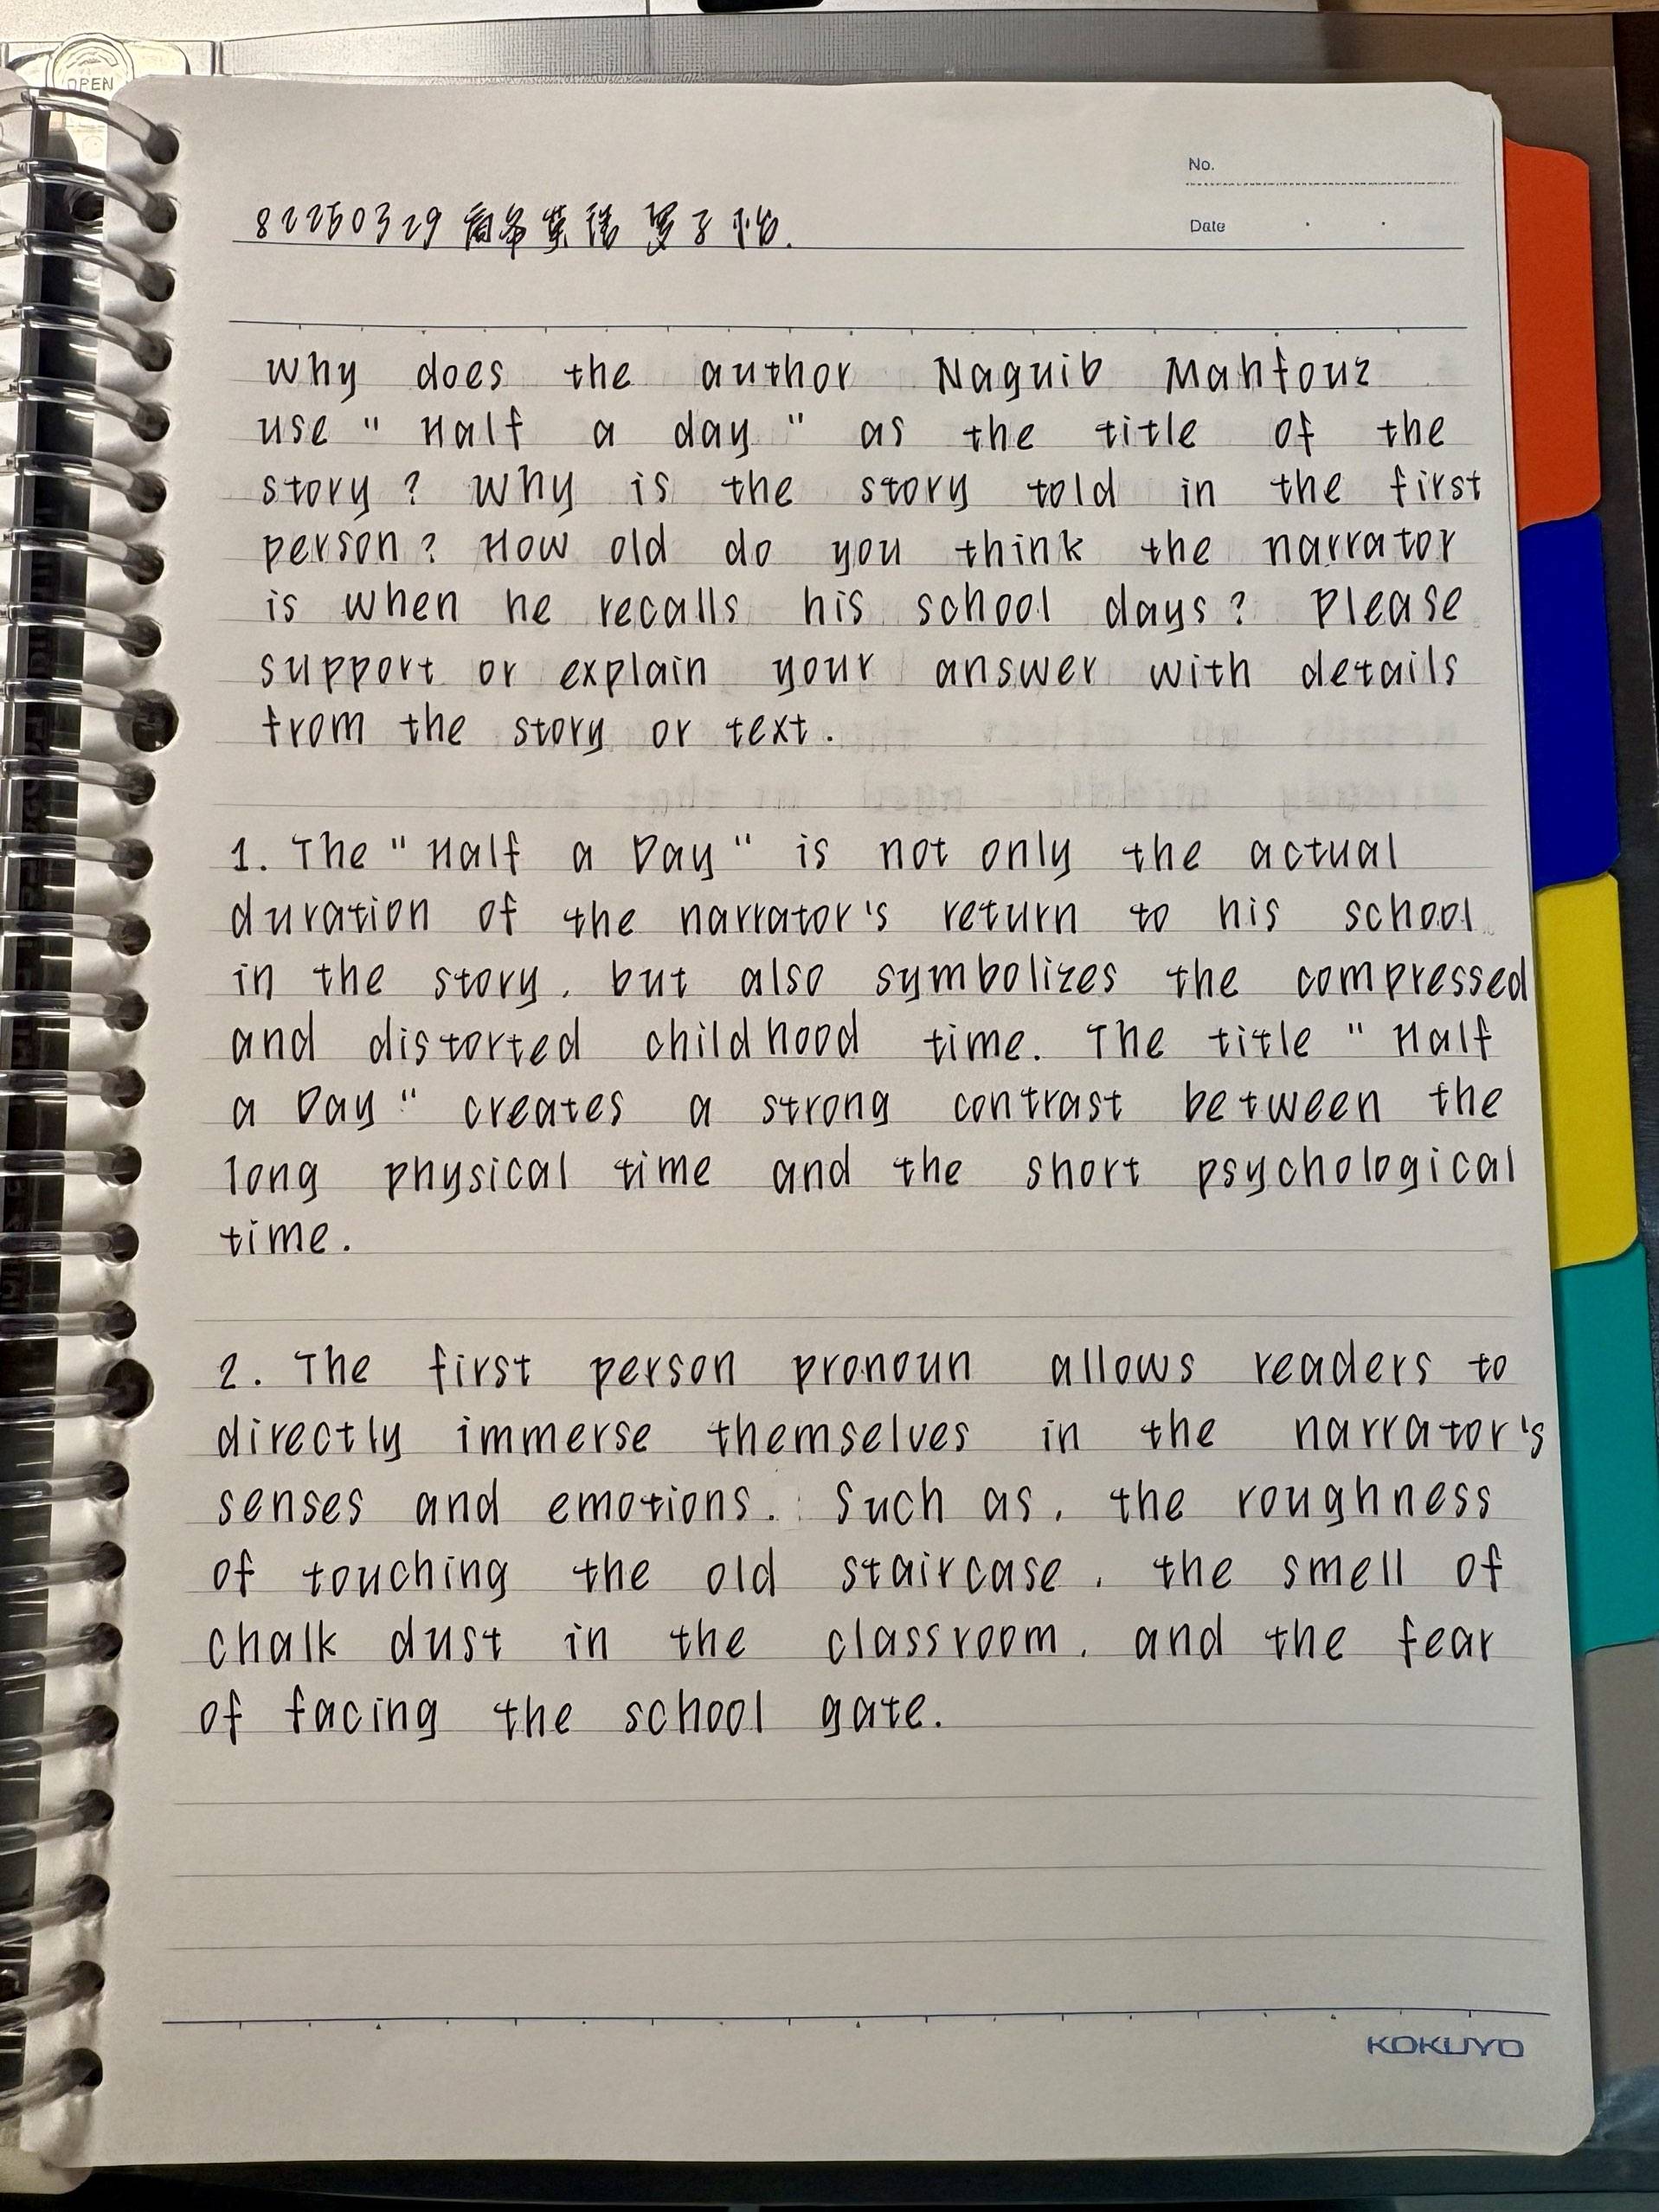 OPEN
No.
Date
82250329 商务英语 贾子怡.
Why does the author Naguib Mahfouz
use " Half a day " as the title of the
story ? Why is the story told in the first
person ? How old do you think the narrator
is when he recalls his school days ? Please
support or explain your answer with details
from the story or text .
1. The " Half a Day " is not only the actual
duration of the narrator's return to his school
in the story , but also symbolizes the compressed
and distorted childhood time. The title " Half
a Day " creates a strong contrast between the
long physical time and the short psychological
time .
2. The first person pronoun allows readers to
directly immerse themselves in the narrator's
senses and emotions. Such as , the roughness
of touching the old staircase , the smell of
chalk dust in the classroom , and the fear
of facing the school gate.
KOKUYO